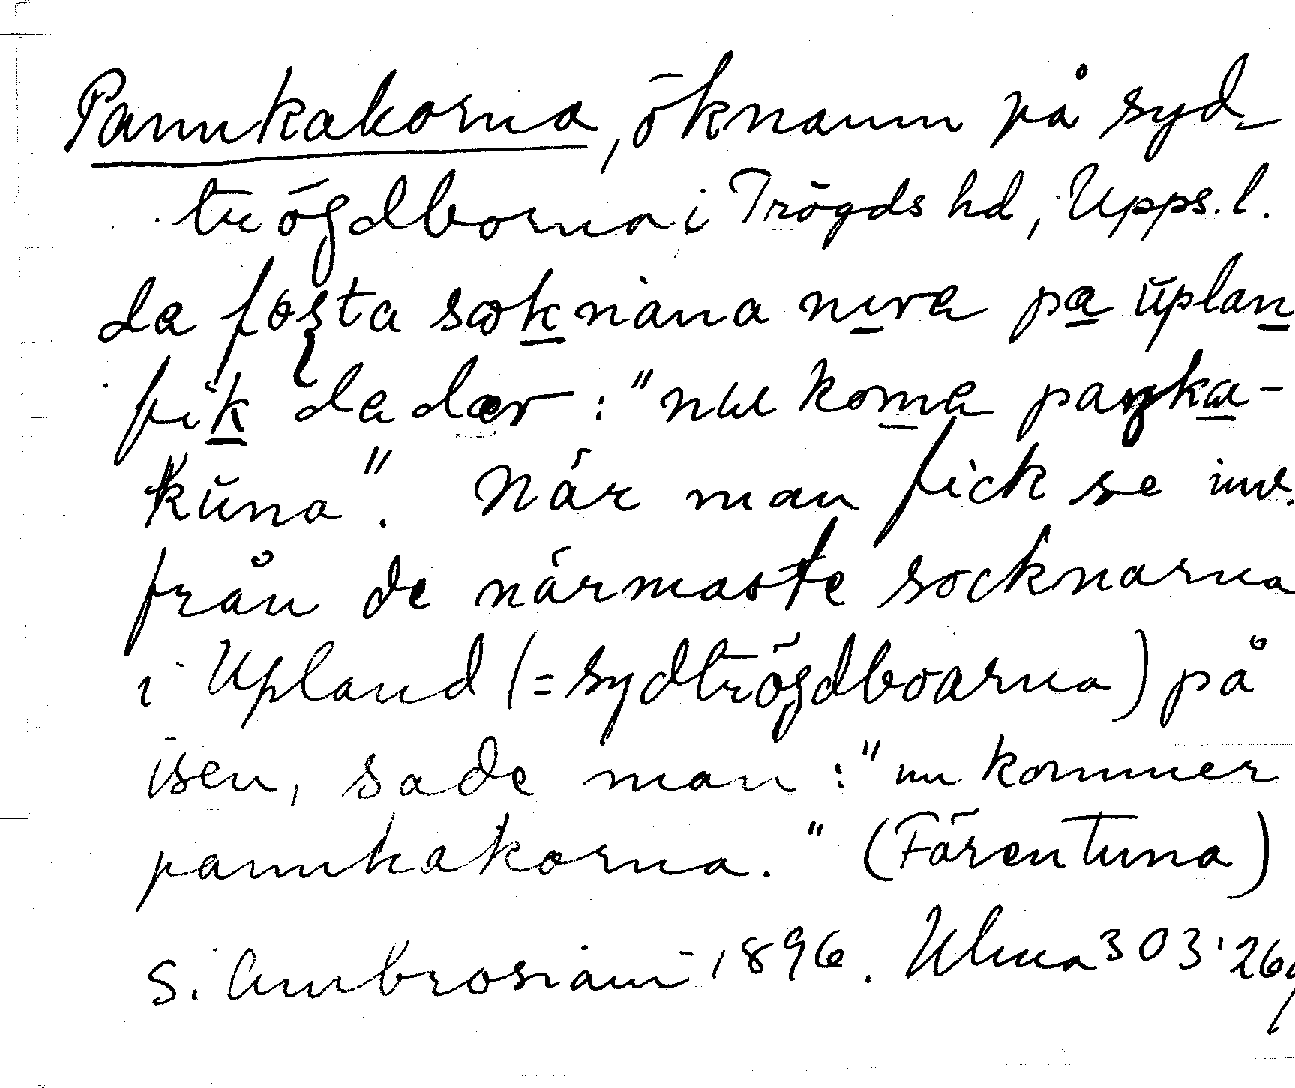 Pannkakorna, öknamn på syd-
trögdborna i Trögds hd, Upps. l.
da fosta sœknana nura pa ŭplan
fik da dær: "nu koma paŋka-
kŭna". När man fick se inv.
från de närmaste socknarna
i Upland (= sydtrögdboarna) på
isen, sade man: "nu kommer
pannkakorna." (Färentuna)
S. Ambrosiani 1896. Ulua 303:26